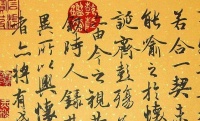 若合一契未
能喻之於懷
誕齊彭殤
由今之視
時人錄其
異所以興懷
者亦將有